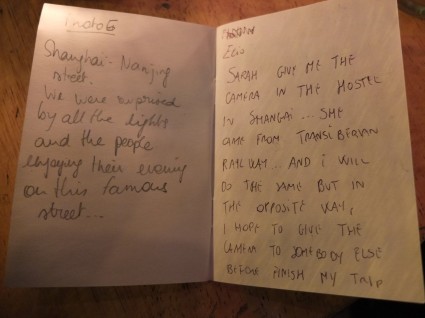 Shanghai - Nanjing
street.
We were surprised
by all the lights
and the people
enjoying their evening
on this famous
street...
SARAH GIVE ME THE
CAMERA IN THE HOSTEL
IN SHANGAI... SHE
CAME FROM TRANSIBERIAN
RAILWAY... AND I WILL
DO THE SAME BUT IN
THE OPPOSITE WAY,
I HOPE TO GIVE THE
CAMERA TO SOMEBODY ELSE
BEFORE FINISH MY TRIP